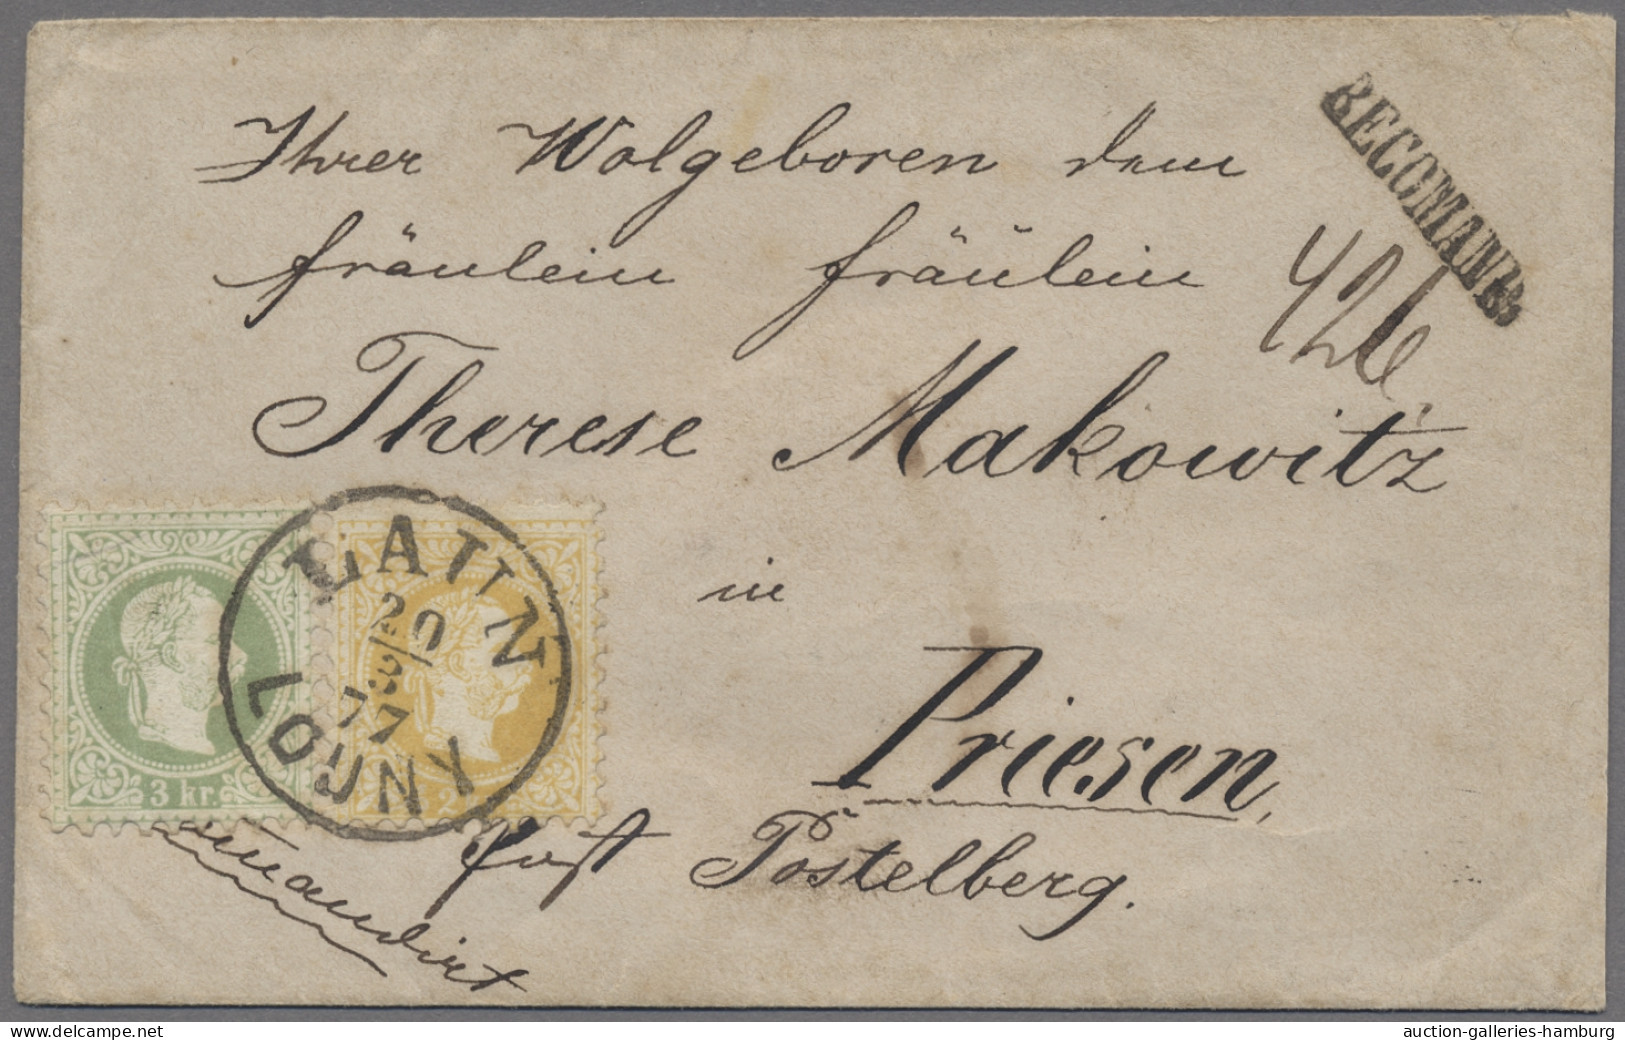 Ihrer Wolgeboren dem
fräulein fräulein
Therese Makowitz
in
Priesen,
Post Postelberg.
RECOMAND.
426
LAUN
20/3
77
LOUNY
3 kr.
2
www.delcampe.net
auction-galleries-hamburg